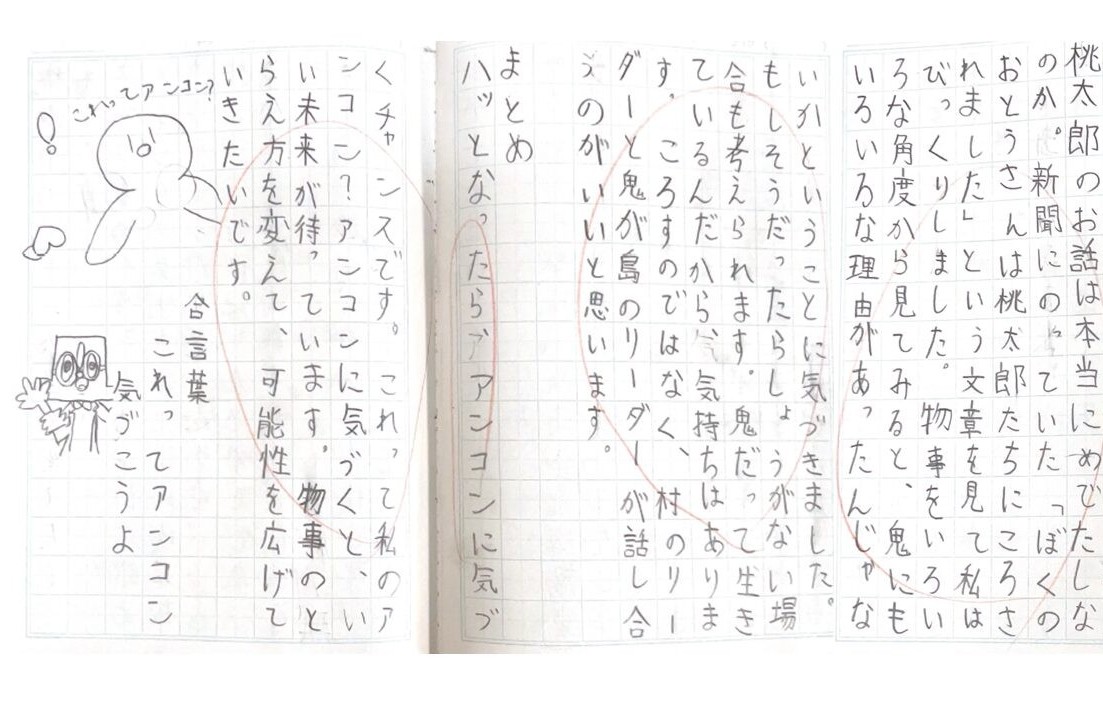 桃太郎のお話は本当にめでたしな
のか。新聞にのっていた「ぼくの
おとうさんは桃太郎たちにころさ
れました」という文章を見て私は
びっくりしました。物事をいろい
ろな角度から見てみると、鬼にも
いろいろな理由があったんじゃな
いかということに気づきました。
もしそうだったらしょうがない場
合も考えられます。鬼だって生き
ているんだから、気持ちはありま
す。ころすのではなく、村のリー
ダーと鬼が島のリーダーが話し合
うのがいいと思います。
まとめ
ハッとなったらアンコンに気づ
くチャンスです。これって私のア
ンコン?アンコンに気づくと、い
い未来が待っています。物事のと
らえ方を変えて、可能性を広げて
いきたいです。
合言葉
これってアンコン
気づこうよ
これってアンコン?
!